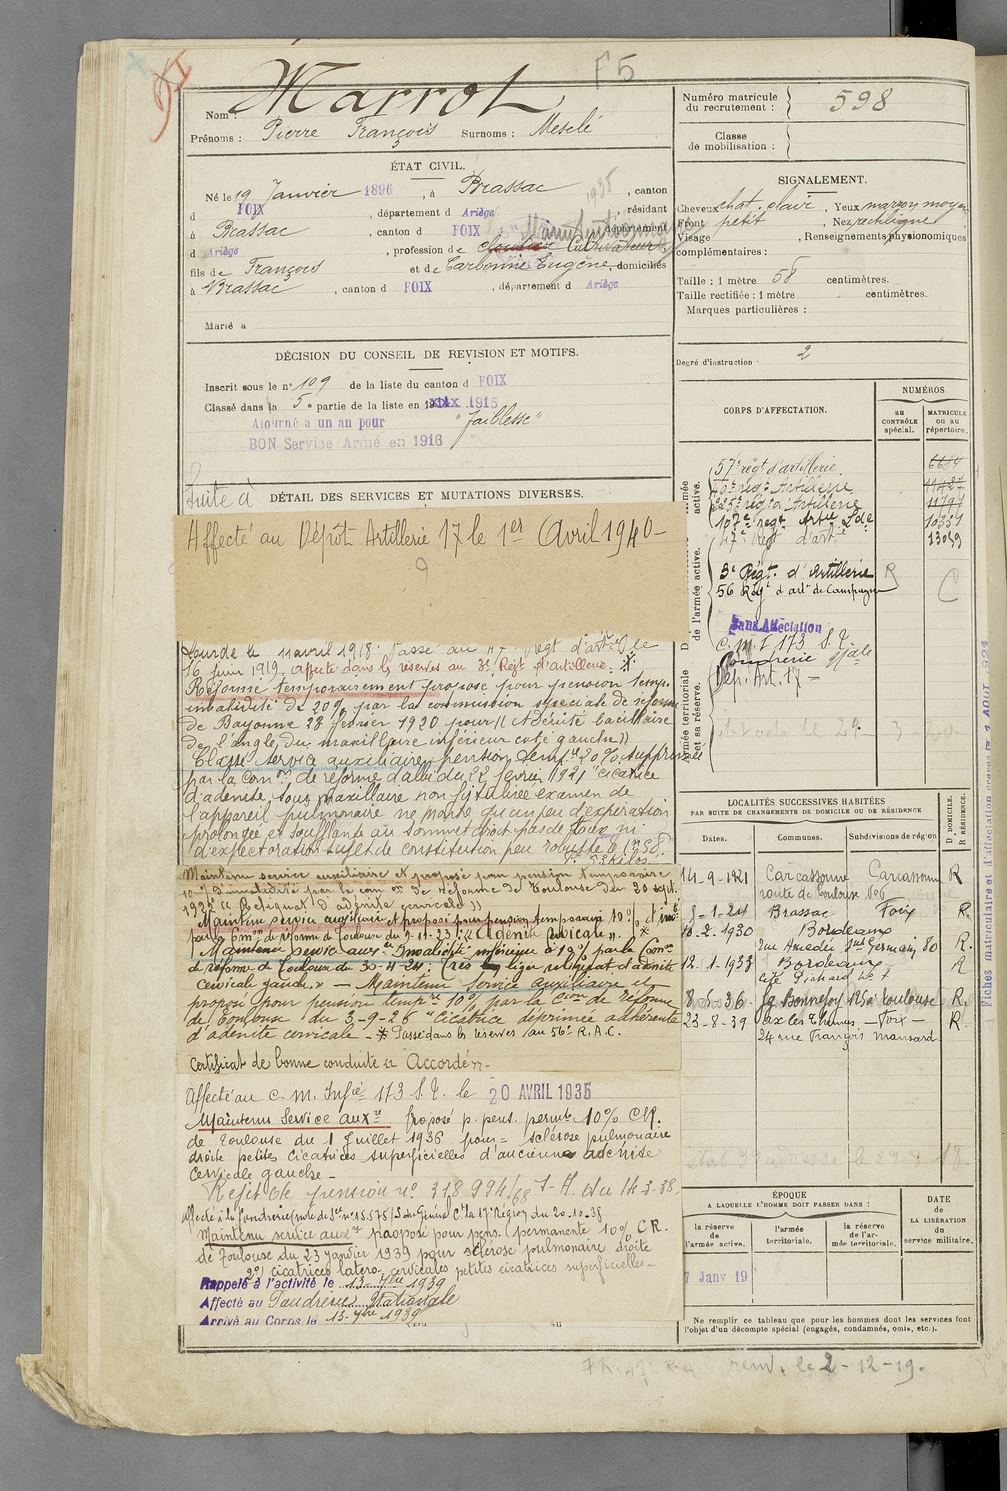 F5
Nom : Marrot
Prénoms : Pierre François Surnoms : Mesclé
ÉTAT CIVIL.
Né le 19 Janvier 1896, à Brassac, canton
d FOIX, département d Ariège, résidant
à Brassac, canton d FOIX, département
d Ariège, profession de Cultivateur
fils de François et de Carbonne Eugène, domiciliés
à Brassac, canton d FOIX, département d Ariège
Marié à
DÉCISION DU CONSEIL DE REVISION ET MOTIFS.
Inscrit sous le n° 109 de la liste du canton d FOIX
Classé dans la 5e partie de la liste en 1915
Ajourné à un an pour "faiblesse"
BON Service Armé en 1916
Suite à
DÉTAIL DES SERVICES ET MUTATIONS DIVERSES.
Affecté au Dépôt Artillerie 17 le 1er Avril 1940 -
lourde le 11 avril 1918. Passé au 47e Régt d'artie le
16 Juin 1919, affecté dans les réserves au 3e Régt d'artillerie.
Réformé temporairement proposé pour pension temp.
invalidité de 20% par la commission spéciale de réforme
de Bayonne 28 février 1920 pour (( Adénite bacillaire
de l'angle du maxillaire inférieur coté gauche))
Classé service auxiliaire pension temp 20% supprimée
par la Comon de réforme d'albi du 22 février 1921 "cicatrice
d'adénite sous maxillaire non fistulisée examen de
l'appareil pulmonaire ne montre qu'un peu d'expiration
prolongée et soufflante au sommet droit pas de toux ni
d'expectoration sujet de constitution peu robuste
Maintenu service auxiliaire et proposé pour pension temporaire
10% d'invalidité par la com on de réforme de Toulouse du 20 sept.
Maintenu service auxiliaire et proposé pour pension temporaire 10%
par la Comon de réforme de Toulouse du
Maintenu service auxre Invalidité inférieure à 10% par la Comon
de réforme de Toulouse du 30-4-24 : très léger reliquat d'adénite
cervicale gauche. » — Maintenu service auxiliaire et
proposé pour pension tempre 10% par la Cion de réforme
de Toulouse du 3-9-26 "Cicatrice déprimée adhérente
d'adénite cervicale - * Passé dans les réserves au 56e R.A.C.
Certificat de bonne conduite "Accordé"
Affecté au C. M. Infie 173 S. T. le 20 AVRIL 1935
Maintenu Service auxre Proposé p. pens. permte 10% C.R.
de Toulouse du 1 Juillet 1936 pour = sclérose pulmonaire
droite petites cicatrices superficielles d'ancienne adénite
cervicale gauche -
Rejet de pension n° 318 994/68 J-A. du 14-3-38.
Maintenu service auxre proposé pour pens. permanente 10% C.R.
de Toulouse du 23 janvier 1939 pour sclérose pulmonaire droite
2°) cicatrices latero-cervicales petites cicatrices superficielles -
Rappelé à l'activité le 13-7bre 1939
Affecté au Poudrerie Nationale
Arrivé au Corps le 13-7bre 1939
Numéro matricule du recrutement : 598
Classe de mobilisation :
SIGNALEMENT.
Cheveux chat. clair, Yeux marron moyen
Front petit, Nez rectiligne
Visage, Renseignements physionomiques
complémentaires :
Taille : 1 mètre 58 centimètres.
Taille rectifiée : 1 mètre centimètres.
Marques particulières :
Degré d'instruction : 2
CORPS D'AFFECTATION.
NUMÉROS
au CONTRÔLE spécial.
MATRICULE ou au répertoire.
57e régt d'artillerie. 6684
Artillerie
225e régt Artillerie 11791
107e régt Artie Lde 10351
47e Régt d'artie 13049
3e Régt. d'Artillerie R
56 Régt d'artie de Campagne
Sans Affectation
C. M. I 173 S. T.
Poudrerie Nale
Dép. Art. 17 -
Armée territoriale et sa réserve.
LOCALITÉS SUCCESSIVES HABITÉES
PAR SUITE DE CHANGEMENTS DE DOMICILE OU DE RÉSIDENCE
Dates. Communes. Subdivisions de région
D. DOMICILE.
R. RÉSIDENCE.
14-9-1921 Carcassonne Carcassonne R
route de Toulouse
8-1-24 Brassac Foix R.
10-2-1930 Bordeaux
rue Amédée St Germain, 80 R.
12.1.1933 Bordeaux R
8-5-36. Toulouse R.
23-8-39 Ax les Thermes - Foix - R.
24 rue François Mansard
ÉPOQUE
A LAQUELLE L'HOMME DOIT PASSER DANS :
la réserve de l'armée active.
l'armée territoriale.
la réserve de l'armée territoriale.
DATE DE LA LIBÉRATION du service militaire.
7 Janv 19
Ne remplir ce tableau que pour les hommes dont les services font
l'objet d'un décompte spécial (engagés, condamnés, omis, etc.).
rem. le 2-12-19.